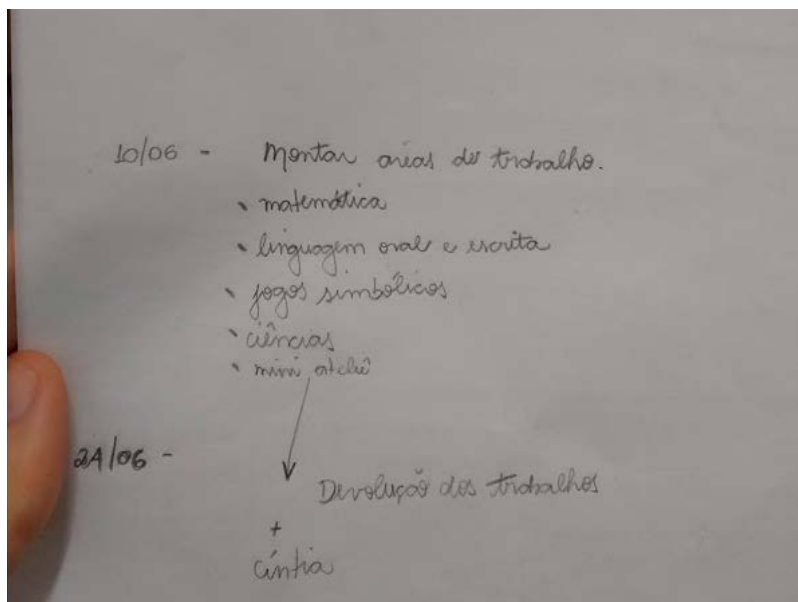 10/06 - Montar áreas de trabalho.
matemática
linguagem oral e escrita
jogos simbólicos
ciências
mini ateliê
24/06 -
Devolução dos trabalhos
+
Cíntia